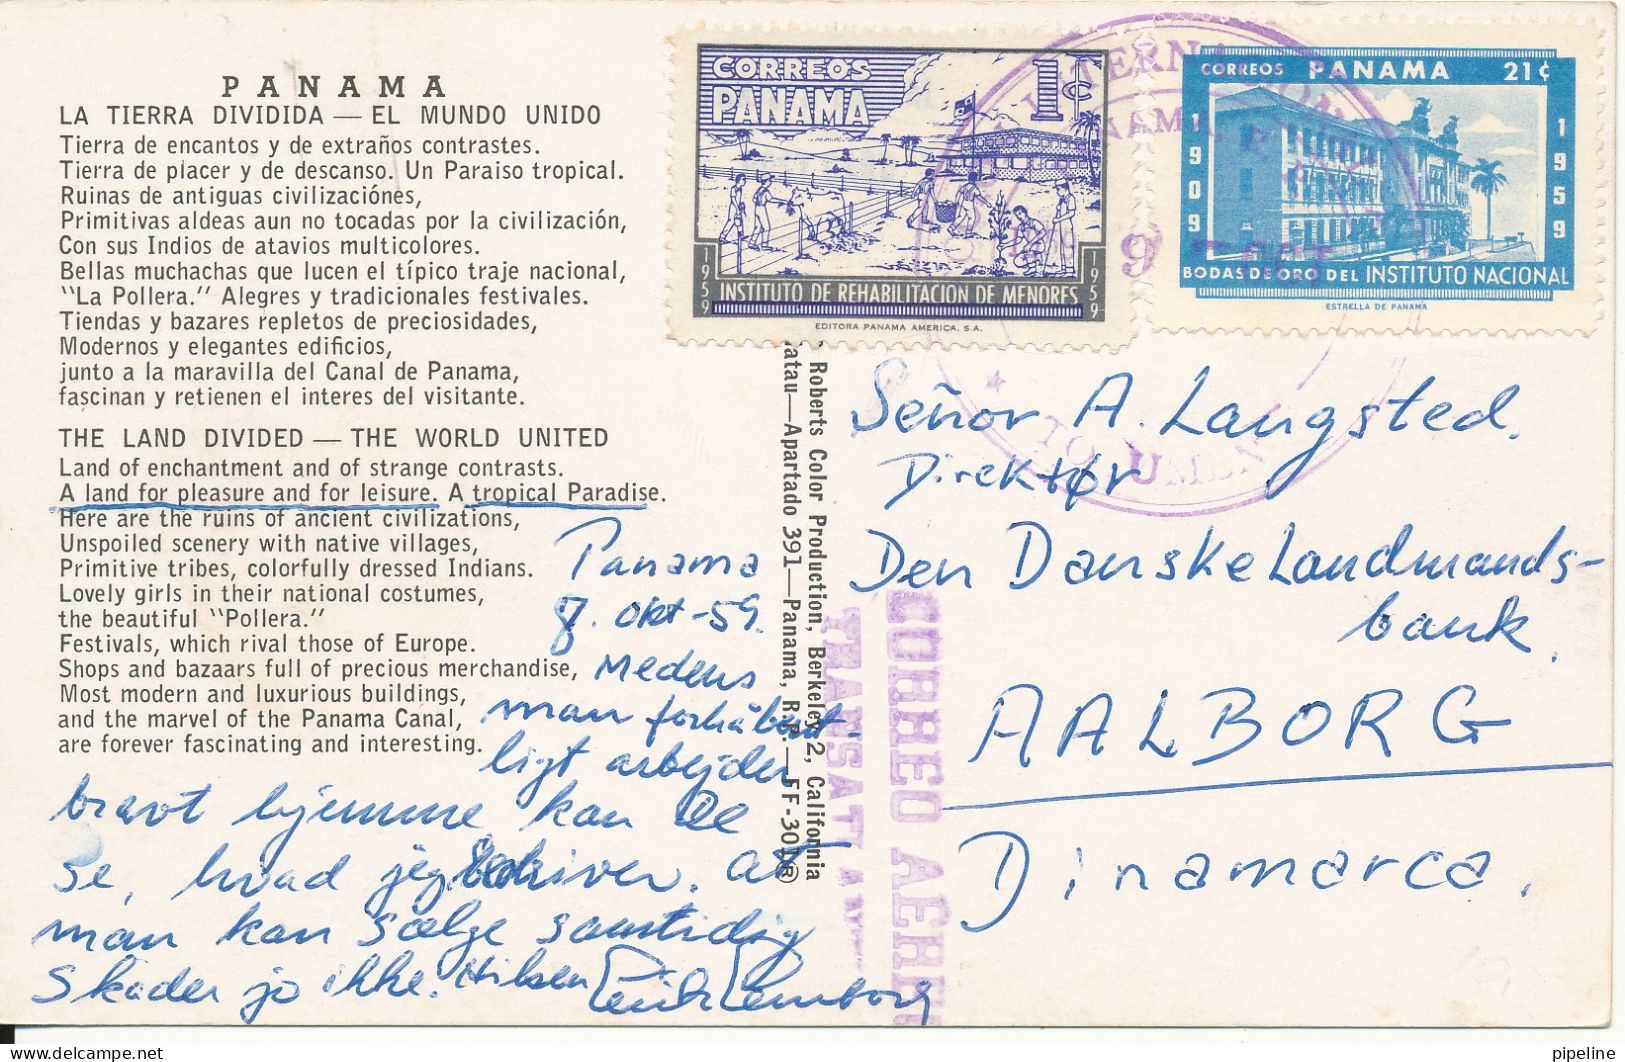 PANAMA
LA TIERRA DIVIDIDA — EL MUNDO UNIDO
Tierra de encantos y de extraños contrastes.
Tierra de placer y de descanso. Un Paraiso tropical.
Ruinas de antiguas civilizaciónes,
Primitivas aldeas aun no tocadas por la civilización,
Con sus Indios de atavios multicolores.
Bellas muchachas que lucen el típico traje nacional,
"La Pollera." Alegres y tradicionales festivales.
Tiendas y bazares repletos de preciosidades,
Modernos y elegantes edificios,
junto a la maravilla del Canal de Panama,
fascinan y retienen el interes del visitante.
THE LAND DIVIDED — THE WORLD UNITED
Land of enchantment and of strange contrasts.
A land for pleasure and for leisure. A tropical Paradise.
Here are the ruins of ancient civilizations,
Unspoiled scenery with native villages,
Primitive tribes, colorfully dressed Indians.
Lovely girls in their national costumes,
the beautiful "Pollera."
Festivals, which rival those of Europe.
Shops and bazaars full of precious merchandise,
Most modern and luxurious buildings,
and the marvel of the Panama Canal,
are forever fascinating and interesting.
Panama
8. okt - 59.
Medens
man forhåbent-
ligt arbejder
bravt hjemme kan De
se, hvad jeg skriver. At
man kan sælge samtidig
skader jo ikke. Hilsen
Roberts Color Production, Berkeley 2, California
atau—Apartado 391—Panama, R.P.—FF-301 ®
CORREOS
PANAMA
1c
1959
1959
INSTITUTO DE REHABILITACION DE MENORES
EDITORA PANAMA AMERICA, S.A.
CORREOS PANAMA 21¢
1909
1959
BODAS DE ORO DEL INSTITUTO NACIONAL
ESTRELLA DE PANAMA
TOCUMEN
Señor A. Langsted.
Direktør
Den Danske Landmands-
bank.
AALBORG
Dinamarca.
CORREO AERE
pipeline